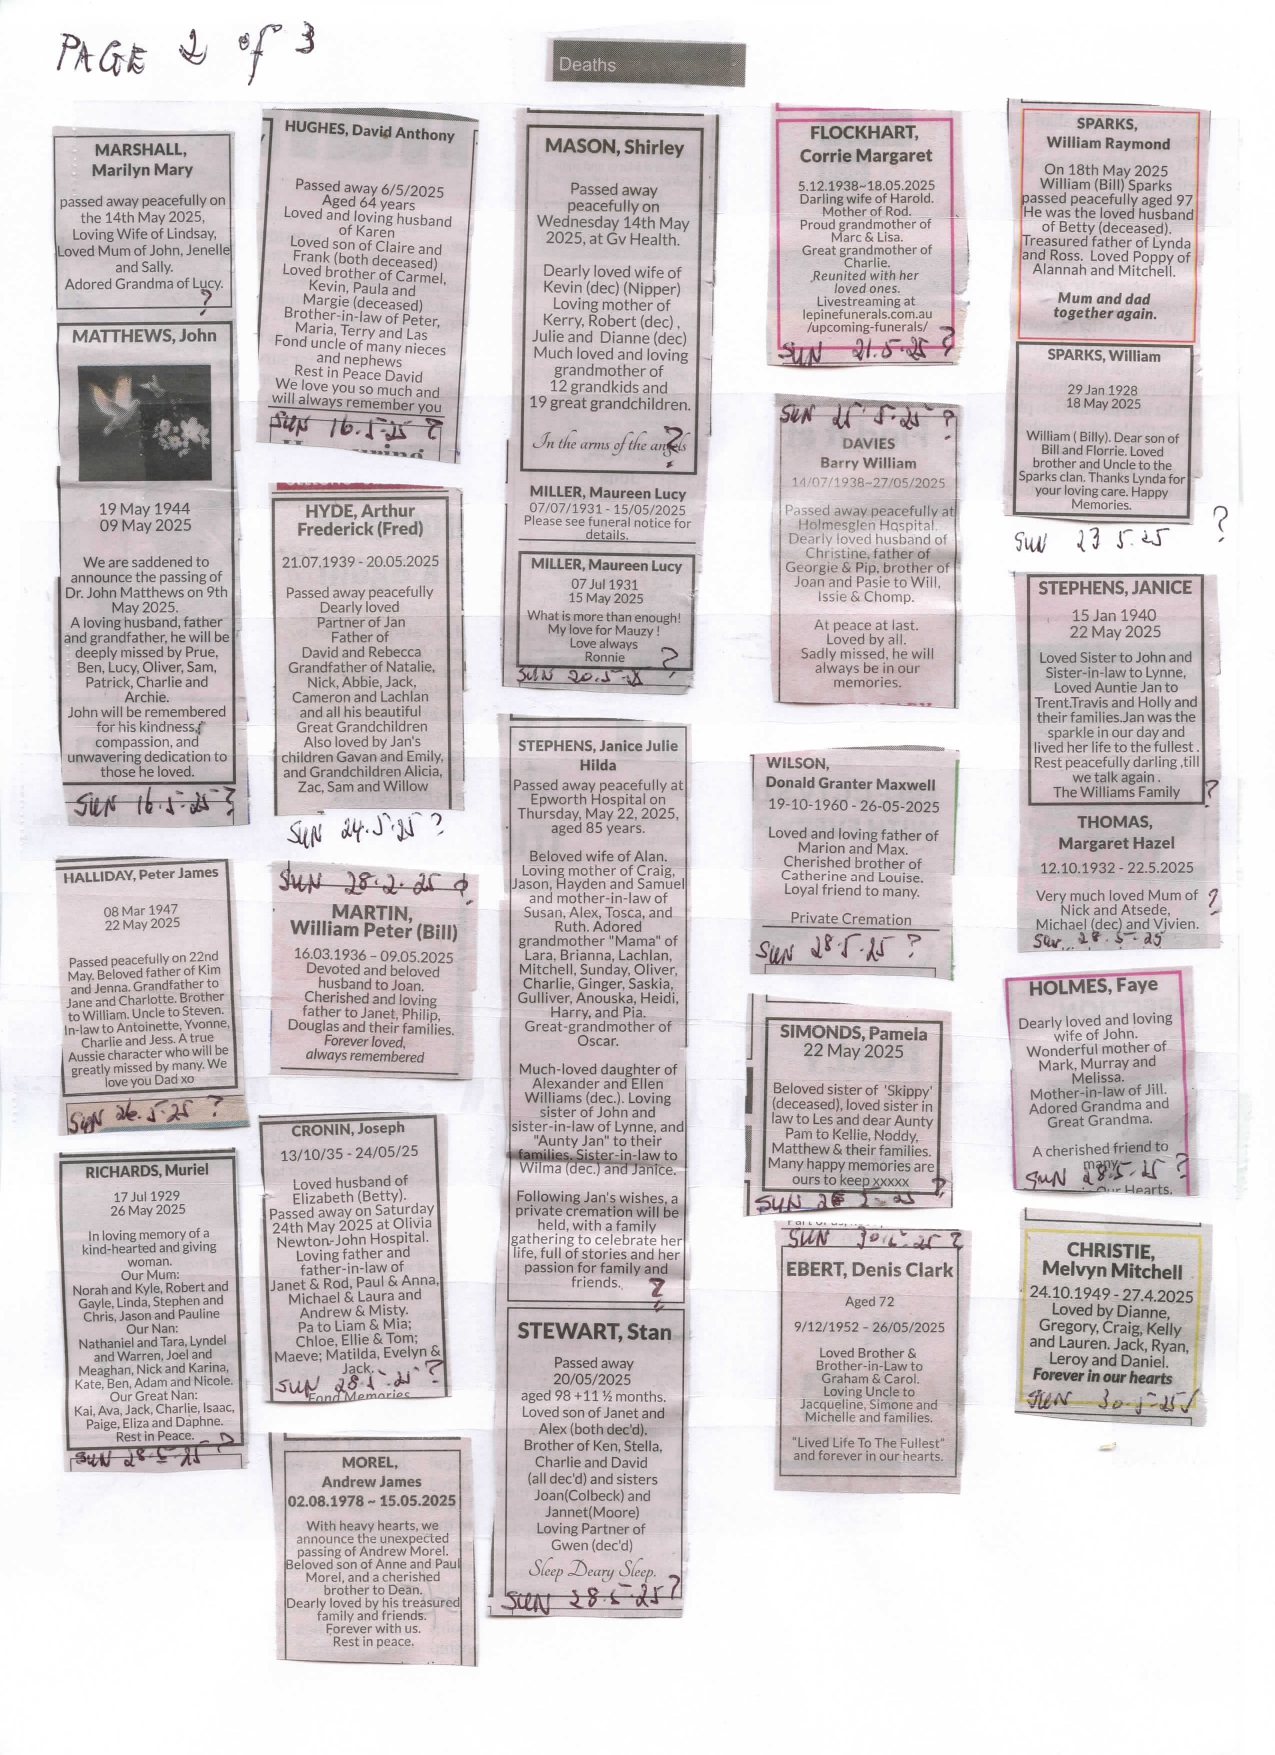 PAGE 2 of 3
Deaths
MARSHALL,
Marilyn Mary
passed away peacefully on
the 14th May 2025,
Loving Wife of Lindsay,
Loved Mum of John, Jenelle
and Sally.
Adored Grandma of Lucy.
?
MATTHEWS, John
19 May 1944
09 May 2025
We are saddened to
announce the passing of
Dr. John Matthews on 9th
May 2025.
A loving husband, father
and grandfather, he will be
deeply missed by Prue,
Ben, Lucy, Oliver, Sam,
Patrick, Charlie and
Archie.
John will be remembered
for his kindness,
compassion, and
unwavering dedication to
those he loved.
SUN 16.5.25 ?
HALLIDAY, Peter James
08 Mar 1947
22 May 2025
Passed peacefully on 22nd
May. Beloved father of Kim
and Jenna. Grandfather to
Jane and Charlotte. Brother
to William. Uncle to Steven.
In-law to Antoinette, Yvonne,
Charlie and Jess. A true
Aussie character who will be
greatly missed by many. We
love you Dad xo
SUN 26.5.25 ?
RICHARDS, Muriel
17 Jul 1929
26 May 2025
In loving memory of a
kind-hearted and giving
woman.
Our Mum:
Norah and Kyle, Robert and
Gayle, Linda, Stephen and
Chris, Jason and Pauline
Our Nan:
Nathaniel and Tara, Lyndel
and Warren, Joel and
Meaghan, Nick and Karina,
Kate, Ben, Adam and Nicole.
Our Great Nan:
Kai, Ava, Jack, Charlie, Isaac,
Paige, Eliza and Daphne.
Rest in Peace.
SUN 28.5.25 ?
HUGHES, David Anthony
Passed away 6/5/2025
Aged 64 years
Loved and loving husband
of Karen
Loved son of Claire and
Frank (both deceased)
Loved brother of Carmel,
Kevin, Paula and
Margie (deceased)
Brother-in-law of Peter,
Maria, Terry and Las
Fond uncle of many nieces
and nephews
Rest in Peace David
We love you so much and
will always remember you
SUN 16.5.25 ?
HYDE, Arthur
Frederick (Fred)
21.07.1939 - 20.05.2025
Passed away peacefully
Dearly loved
Partner of Jan
Father of
David and Rebecca
Grandfather of Natalie,
Nick, Abbie, Jack,
Cameron and Lachlan
and all his beautiful
Great Grandchildren
Also loved by Jan's
children Gavan and Emily,
and Grandchildren Alicia,
Zac, Sam and Willow
SUN 24.5.25 ?
SUN 28.2.25 ?
MARTIN,
William Peter (Bill)
16.03.1936 – 09.05.2025
Devoted and beloved
husband to Joan.
Cherished and loving
father to Janet, Philip,
Douglas and their families.
Forever loved,
always remembered
CRONIN, Joseph
13/10/35 - 24/05/25
Loved husband of
Elizabeth (Betty).
Passed away on Saturday
24th May 2025 at Olivia
Newton-John Hospital.
Loving father and
father-in-law of
Janet & Rod, Paul & Anna,
Michael & Laura and
Andrew & Misty.
Pa to Liam & Mia;
Chloe, Ellie & Tom;
Maeve; Matilda, Evelyn &
Jack.
SUN 28.5.25 ?
Fond Memories
MOREL,
Andrew James
02.08.1978 ~ 15.05.2025
With heavy hearts, we
announce the unexpected
passing of Andrew Morel.
Beloved son of Anne and Paul
Morel, and a cherished
brother to Dean.
Dearly loved by his treasured
family and friends.
Forever with us.
Rest in peace.
MASON, Shirley
Passed away
peacefully on
Wednesday 14th May
2025, at Gv Health.
Dearly loved wife of
Kevin (dec) (Nipper)
Loving mother of
Kerry, Robert (dec) ,
Julie and Dianne (dec)
Much loved and loving
grandmother of
12 grandkids and
19 great grandchildren.
In the arms of the angels
?
MILLER, Maureen Lucy
07/07/1931 - 15/05/2025
Please see funeral notice for
details.
MILLER, Maureen Lucy
07 Jul 1931
15 May 2025
What is more than enough!
My love for Mauzy !
Love always
Ronnie
?
SUN 20.5.
STEPHENS, Janice Julie
Hilda
Passed away peacefully at
Epworth Hospital on
Thursday, May 22, 2025,
aged 85 years.
Beloved wife of Alan.
Loving mother of Craig,
Jason, Hayden and Samuel
and mother-in-law of
Susan, Alex, Tosca, and
Ruth. Adored
grandmother "Mama" of
Lara, Brianna, Lachlan,
Mitchell, Sunday, Oliver,
Charlie, Ginger, Saskia,
Gulliver, Anouska, Heidi,
Harry, and Pia.
Great-grandmother of
Oscar.
Much-loved daughter of
Alexander and Ellen
Williams (dec.). Loving
sister of John and
sister-in-law of Lynne, and
"Aunty Jan" to their
families. Sister-in-law to
Wilma (dec.) and Janice.
Following Jan's wishes, a
private cremation will be
held, with a family
gathering to celebrate her
life, full of stories and her
passion for family and
friends.
?
STEWART, Stan
Passed away
20/05/2025
aged 98 +11 ½ months.
Loved son of Janet and
Alex (both dec'd).
Brother of Ken, Stella,
Charlie and David
(all dec'd) and sisters
Joan(Colbeck) and
Jannet(Moore)
Loving Partner of
Gwen (dec'd)
Sleep Deary Sleep.
SUN 28.5.25 ?
FLOCKHART,
Corrie Margaret
5.12.1938~18.05.2025
Darling wife of Harold.
Mother of Rod.
Proud grandmother of
Marc & Lisa.
Great grandmother of
Charlie.
Reunited with her
loved ones.
Livestreaming at
lepinefunerals.com.au
/upcoming-funerals/
SUN 21.5.25 ?
SUN 25.5.25 ?
DAVIES
Barry William
14/07/1938~27/05/2025
Passed away peacefully at
Holmesglen Hospital.
Dearly loved husband of
Christine, father of
Georgie & Pip, brother of
Joan and Pasie to Will,
Issie & Chomp.
At peace at last.
Loved by all.
Sadly missed, he will
always be in our
memories.
WILSON,
Donald Granter Maxwell
19-10-1960 - 26-05-2025
Loved and loving father of
Marion and Max.
Cherished brother of
Catherine and Louise.
Loyal friend to many.
Private Cremation
SUN 28.5.25 ?
SIMONDS, Pamela
22 May 2025
Beloved sister of 'Skippy'
(deceased), loved sister in
law to Les and dear Aunty
Pam to Kellie, Noddy,
Matthew & their families.
Many happy memories are
ours to keep xxxxx
SUN 28.5.25 ?
SUN 30.5.25 ?
EBERT, Denis Clark
Aged 72
9/12/1952 - 26/05/2025
Loved Brother &
Brother-in-Law to
Graham & Carol.
Loving Uncle to
Jacqueline, Simone and
Michelle and families.
"Lived Life To The Fullest"
and forever in our hearts.
SPARKS,
William Raymond
On 18th May 2025
William (Bill) Sparks
passed peacefully aged 97
He was the loved husband
of Betty (deceased).
Treasured father of Lynda
and Ross. Loved Poppy of
Alannah and Mitchell.
Mum and dad
together again.
SPARKS, William
29 Jan 1928
18 May 2025
William ( Billy). Dear son of
Bill and Florrie. Loved
brother and Uncle to the
Sparks clan. Thanks Lynda for
your loving care. Happy
Memories.
SUN 23 5.25 ?
STEPHENS, JANICE
15 Jan 1940
22 May 2025
Loved Sister to John and
Sister-in-law to Lynne,
Loved Auntie Jan to
Trent.Travis and Holly and
their families.Jan was the
sparkle in our day and
lived her life to the fullest .
Rest peacefully darling ,till
we talk again .
The Williams Family
?
THOMAS,
Margaret Hazel
12.10.1932 - 22.5.2025
Very much loved Mum of
Nick and Atsede,
Michael (dec) and Vivien.
?
SUN 28.5.25
HOLMES, Faye
Dearly loved and loving
wife of John.
Wonderful mother of
Mark, Murray and
Melissa.
Mother-in-law of Jill.
Adored Grandma and
Great Grandma.
A cherished friend to
many.
SUN 28.5.25 ?
Our Hearts.
CHRISTIE,
Melvyn Mitchell
24.10.1949 - 27.4.2025
Loved by Dianne,
Gregory, Craig, Kelly
and Lauren. Jack, Ryan,
Leroy and Daniel.
Forever in our hearts
SUN 30.5.25